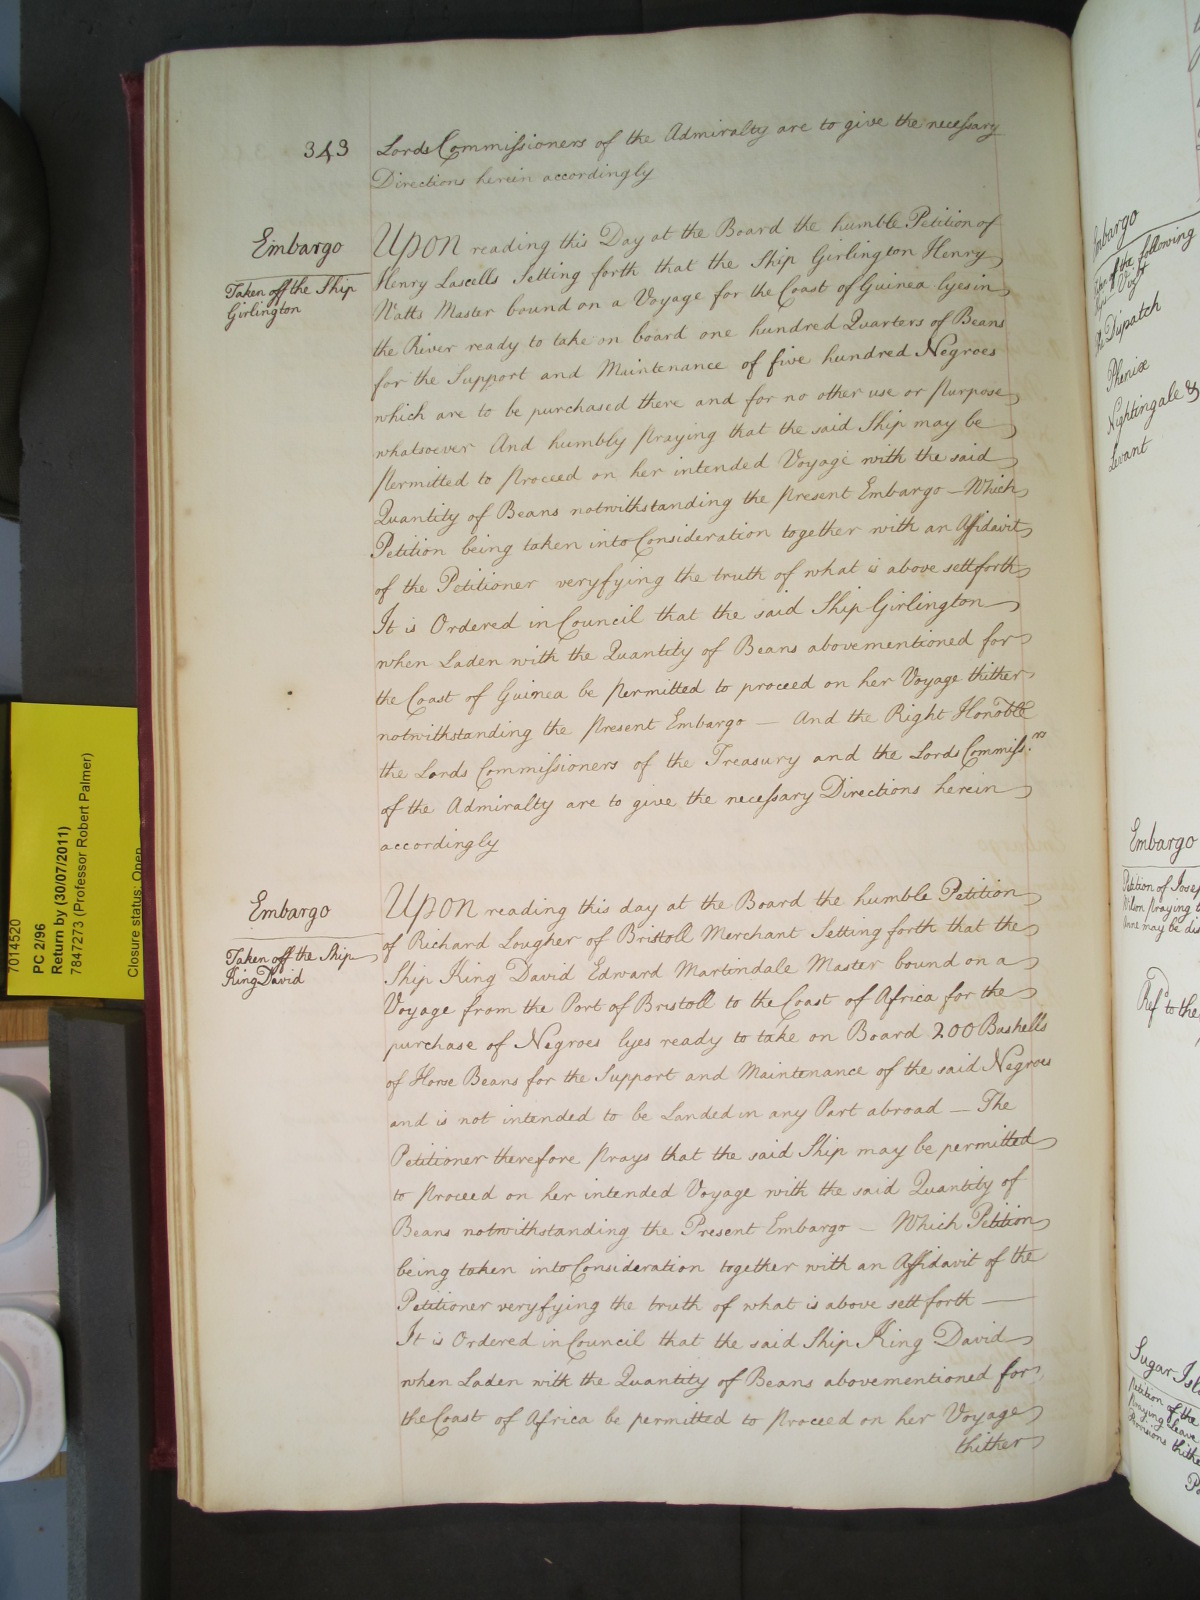 343
Lords Commissioners of the Admiralty are to give the necessary
Directions herein accordingly
Embargo
Taken off the Ship
Girlington
Upon reading this Day at the Board the humble Petition of
Henry Lascells Setting forth that the Ship Girlington Henry
Watts Master bound on a Voyage for the Coast of Guinea lyes in
the River ready to take on board one hundred Quarters of Beans
for the Support and Maintenance of five hundred Negroes
which are to be purchased there and for no other use or Purpose
whatsoever And humbly Praying that the said Ship may be
Permitted to Proceed on her intended Voyage with the said
Quantity of Beans notwithstanding the Present Embargo — Which
Petition being taken into Consideration together with an Affidavit
of the Petitioner veryfying the truth of what is above sett forth
It is Ordered in Council that the said Ship Girlington
when Laden with the Quantity of Beans abovementioned for
the Coast of Guinea be Permitted to proceed on her Voyage thither
notwithstanding the Present Embargo — And the Right Honoble
the Lords Commissioners of the Treasury and the Lords Commiss.rs
of the Admiralty are to give the necessary Directions herein
accordingly
Embargo
Taken off the Ship
King David
Upon reading this day at the Board the humble Petition
of Richard Lougher of Bristoll Merchant Setting forth that the
Ship King David Edward Martindale Master bound on a
Voyage from the Port of Bristoll to the Coast of Africa for the
purchase of Negroes lyes ready to take on Board 200 Bushells
of Horse Beans for the Support and Maintenance of the said Negroes
and is not intended to be Landed in any Part abroad — The
Petitioner therefore Prays that the said Ship may be permitted
to Proceed on her intended Voyage with the said Quantity of
Beans notwithstanding the Present Embargo — Which Petition
being taken into Consideration together with an Affidavit of the
Petitioner veryfying the truth of what is above sett forth —
It is Ordered in Council that the said Ship King David
when Laden with the Quantity of Beans abovementioned for
the Coast of Africa be permitted to Proceed on her Voyage
thither
7014520
PC 2/96
Return by (30/07/2011)
7847273 (Professor Robert Palmer)
Closure status: Open
Embargo
of the following
Dispatch
Phenix
Nightingale &
Levant
Embargo
Petition of
Wilson praying
may be
Ref.d to the
Sugar
Petition of the
Praying Leave
Provisions